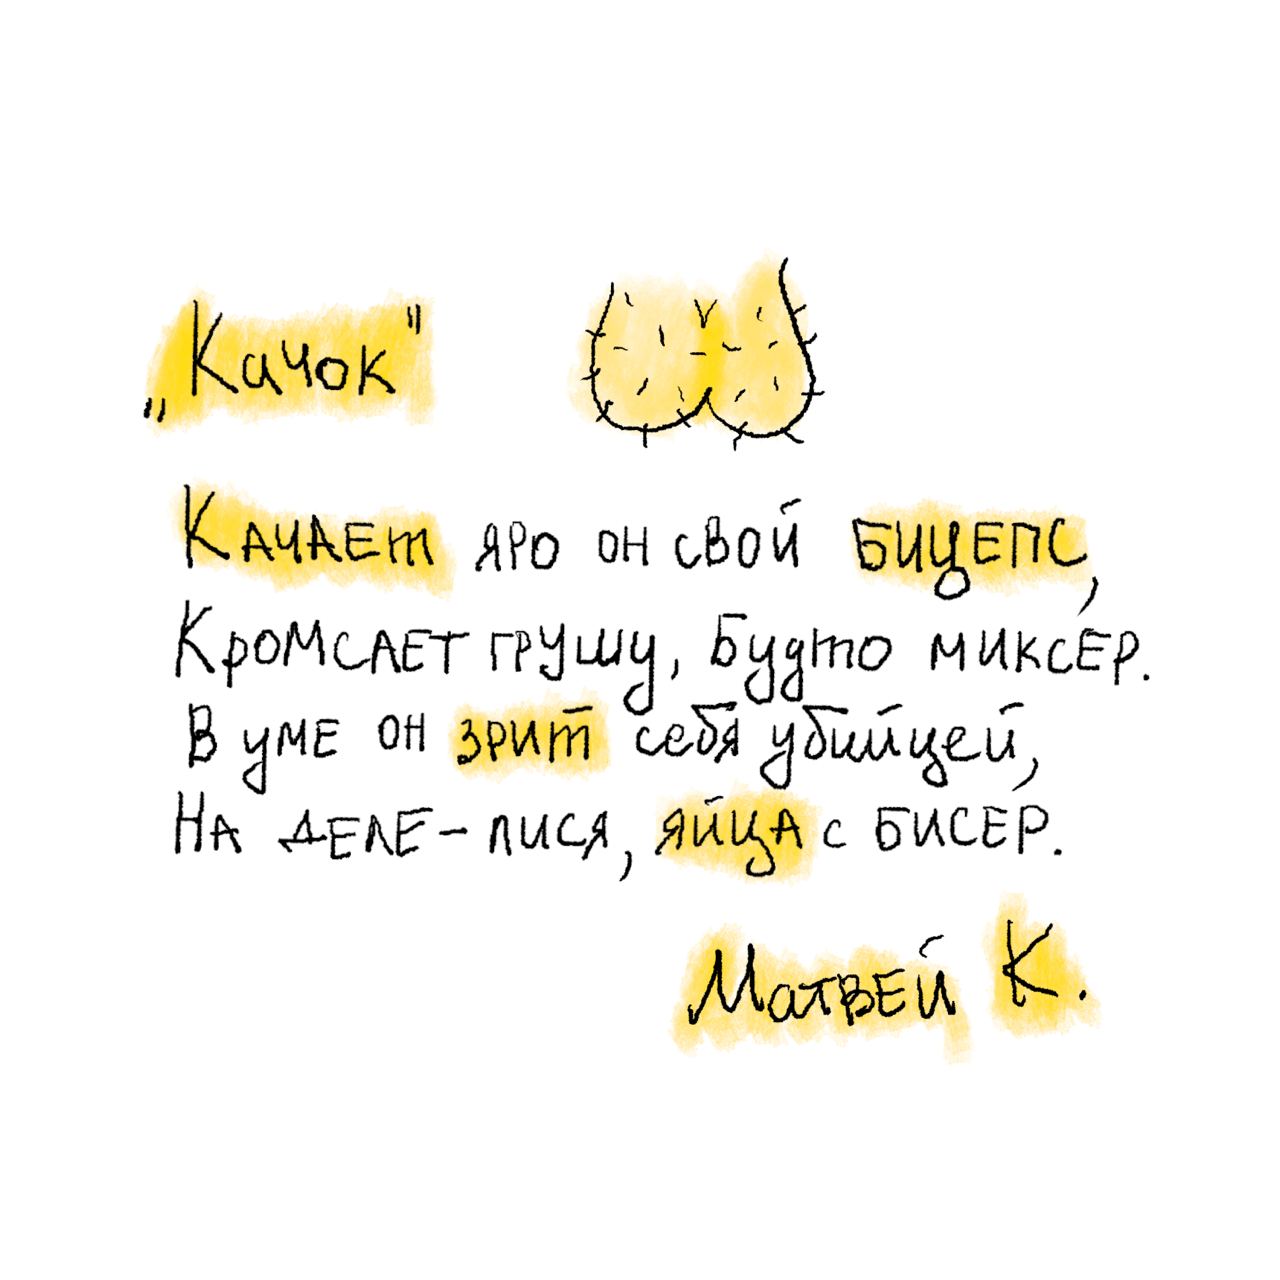 „Качок"
Качает яро он свой бицепс,
Кромсает грушу, будто миксер.
В уме он зрит себя убийцей,
На деле - лися, яйца с бисер.
Матвей К.